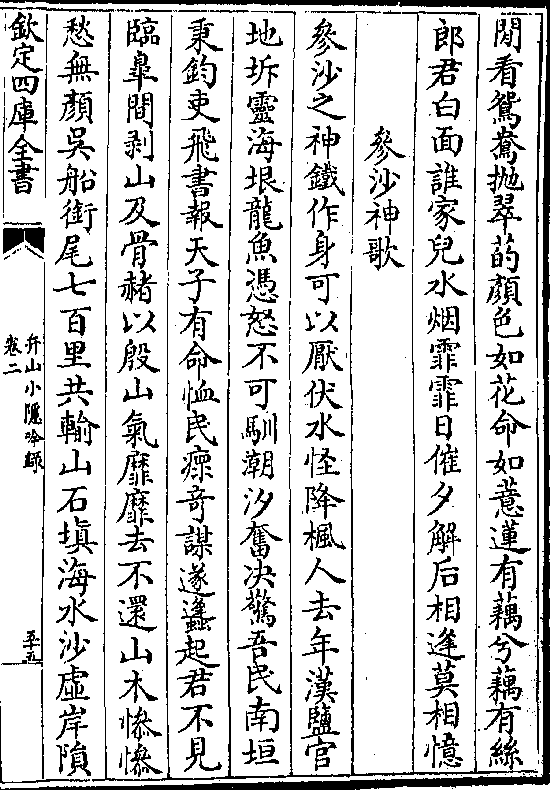 閒看鴛鴦拋翠菂顔色如花命如薏蓮有藕兮藕有絲
郎君白面誰家兒水烟霏霏日催夕解后相逢莫相憶
參沙神歌
參沙之神鐵作身可以厭伏水怪降楓人去年漢鹽官
地坼靈海垠龍魚憑怒不可馴潮汐奮决驚吾民南垣
秉鈞吏飛書報天子有命恤民瘝奇謀遂蠭起君不見
臨臯間剥山及骨赭以殷山氣靡靡去不還山木慘慘
愁無顔吳船銜尾七百里共輸山石塡海水沙虛岸隤
欽定四庫全書
弁山小隱吟録
卷二
五十五